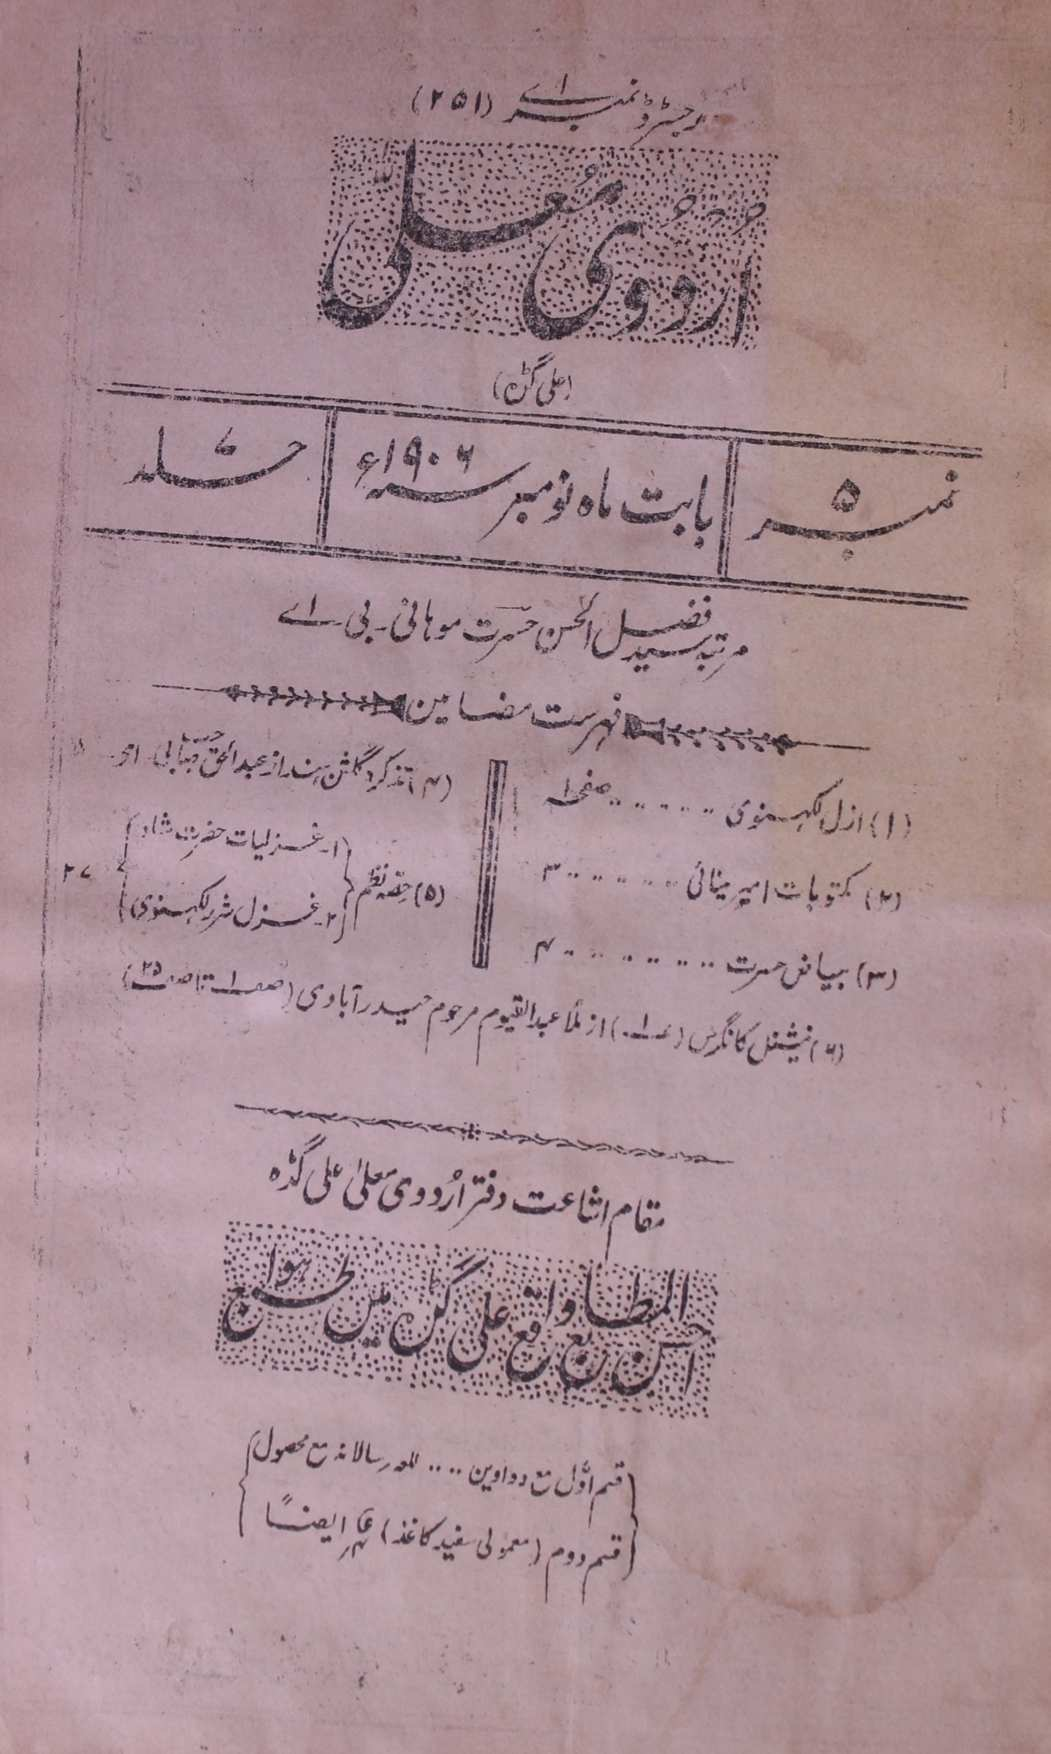 رجسٹرڈ نمبر اے (۲۵۱)
اُردُوی مُعلیٰ
(علی گڑہ)
نمبر ۵
بابت ماہ نومبر سنہ ۱۹۰۶ء
جلد ۷
مرتبہ سید فضل الحسن حسرت موہانی ۔ بی ۔ اے
فہرست مضامین
(۱) ازل لکہنوی ۔۔۔۔۔۔ صفحہ ۱
(۲) مکتوبات امیر مینائی ۔۔۔۔۔۔ ۳
(۳) بیاض حسرت ۔۔۔۔۔۔۔۔ ۴
(۴) تذکرہ گلشن ہند از عبدالحق صاحب بی ۔ اے ۔ ۵
(۵) حصہ نظم
۱۔ غزلیات حضرت شاد
۲۔ غزل شرر لکہنوی
۲۷
(۶) نیشنل کانگرس از ملا عبدالقیوم مرحوم حیدرآبادی (صفحہ ۱ تا صفحہ ۲۵)
مقام اشاعت دفتر اُردوی معلیٰ علی گڈہ
احسن المطابع واقع علی گڑہ میں طبع ہوا
قسم اوّل مع دواوین ۔۔۔۔ للعہ سالانہ مع محصول
قسم دوم (معمولی سفید کاغذ) ایضاً